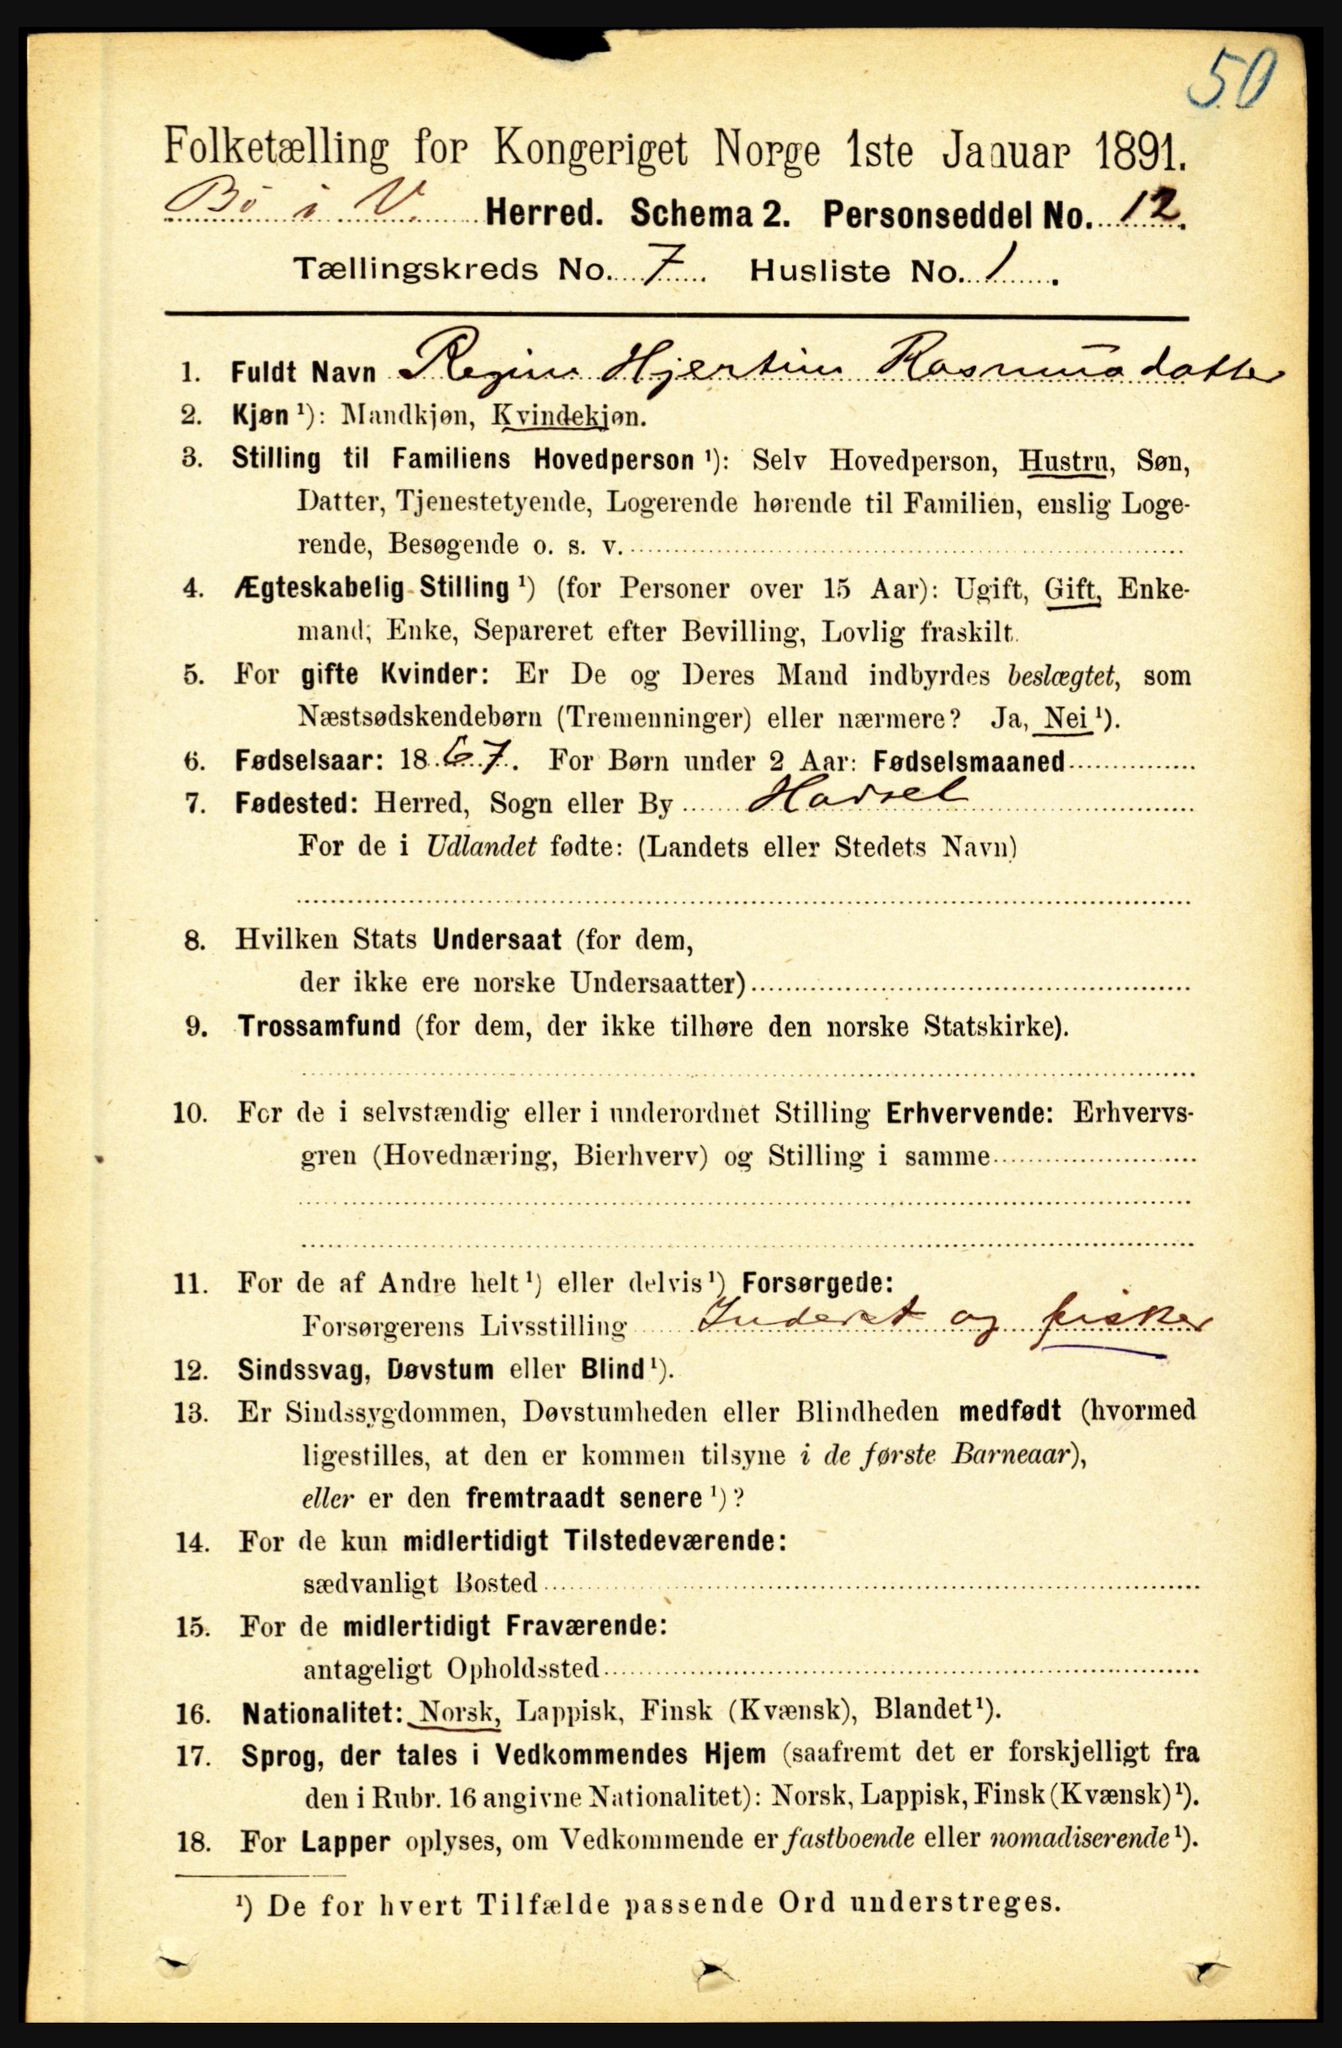 50
Folketælling for Kongeriget Norge 1ste Januar 1891.
Bø i V. Herred. Schema 2. Personseddel No. 12.
Tællingskreds No. 7. Husliste No. 1.
1. Fuldt Navn Regine Hjertine Rasmusdatter
2. Kjøn ¹): Mandkjøn, Kvindekjøn.
3. Stilling til Familiens Hovedperson ¹): Selv Hovedperson, Hustru, Søn,
Datter, Tjenestetyende, Logerende hørende til Familien, enslig Loge-
rende, Besøgende o. s. v.
4. Ægteskabelig Stilling ¹) (for Personer over 15 Aar): Ugift, Gift, Enke-
mand, Enke, Separeret efter Bevilling, Lovlig fraskilt.
5. For gifte Kvinder: Er De og Deres Mand indbyrdes beslægtet, som
Næstsødskendebørn (Tremenninger) eller nærmere? Ja, Nei ¹).
6. Fødselsaar: 1867. For Børn under 2 Aar: Fødselsmaaned
7. Fødested: Herred, Sogn eller By Hadsel
For de i Udlandet fødte: (Landets eller Stedets Navn)
8. Hvilken Stats Undersaat (for dem,
der ikke ere norske Undersaatter)
9. Trossamfund (for dem, der ikke tilhøre den norske Statskirke).
10. For de i selvstændig eller i underordnet Stilling Erhvervende: Erhvervs-
gren (Hovednæring, Bierhverv) og Stilling i samme
11. For de af Andre helt ¹) eller delvis ¹) Forsørgede:
Forsørgerens Livsstilling Inderst og fisker
12. Sindssvag, Døvstum eller Blind ¹).
13. Er Sindssygdommen, Døvstumheden eller Blindheden medfødt (hvormed
ligestilles, at den er kommen tilsyne i de første Barneaar),
eller er den fremtraadt senere ¹)?
14. For de kun midlertidigt Tilstedeværende:
sædvanligt Bosted
15. For de midlertidigt Fraværende:
antageligt Opholdssted
16. Nationalitet: Norsk, Lappisk, Finsk (Kvænsk), Blandet ¹).
17. Sprog, der tales i Vedkommendes Hjem (saafremt det er forskjelligt fra
den i Rubr. 16 angivne Nationalitet): Norsk, Lappisk, Finsk (Kvænsk) ¹).
18. For Lapper oplyses, om Vedkommende er fastboende eller nomadiserende ¹).
¹) De for hvert Tilfælde passende Ord understreges.